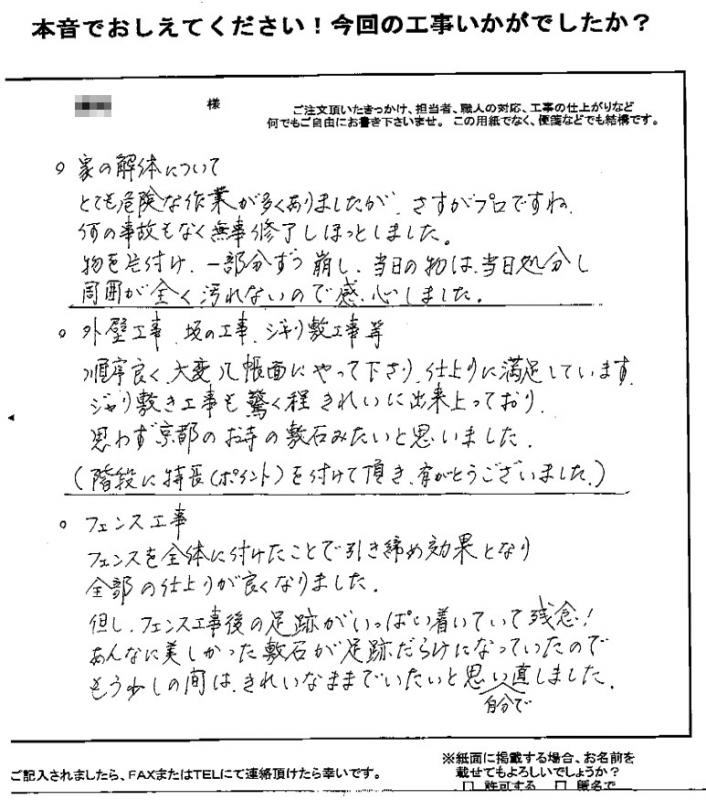 本音でおしえてください！今回の工事いかがでしたか？
様
ご注文頂いたきっかけ、担当者、職人の対応、工事の仕上がりなど
何でもご自由にお書き下さいませ。この用紙でなく、便箋などでも結構です。
○ 家の解体について
とても危険な作業が多くありましたが、さすがプロですね、
何の事故もなく無事修了しほっとしました。
物を片付け、一部分ずつ崩し、当日の物は、当日処分し
周囲が全く汚れないので感心しました。
○ 外壁工事、坂の工事、ジャリ敷工事等
順序良く、大変几帳面にやって下さり、仕上りに満足しています。
ジャリ敷き工事も驚く程きれいに出来上っており、
思わず京都のお寺の敷石みたいと思いました。
(階段に特長(ポイント)を付けて頂き、有がとうございました。)
○ フェンス工事
フェンスを全体に付けたことで引き締め効果となり
全部の仕上りが良くなりました。
但し、フェンス工事後の足跡がいっぱい着いていて残念！
あんなに美しかった敷石が足跡だらけになっていたので
もう少しの間は、きれいなままでいたいと思い直しました。
自分で
※紙面に掲載する場合、お名前を
載せてもよろしいでしょうか？
ご記入されましたら、FAXまたはTELにて連絡頂けたら幸いです。
□ 許可する □ 匿名で